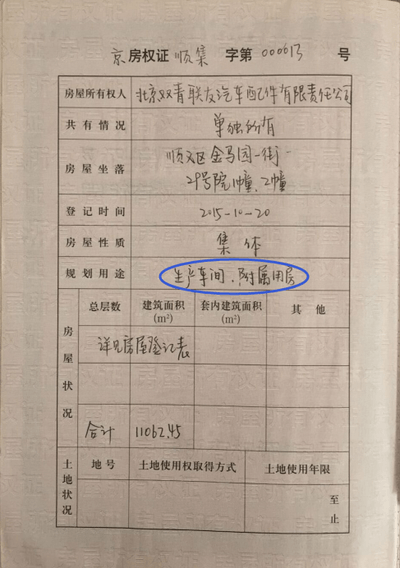 京 房权证 顺集 字第 000013 号
房屋所有权人 北京双青联友汽车配件有限责任公司
共有情况 单独所有
房屋坐落 顺义区金马园一街
29号院1幢、2幢
登记时间 2015-10-20
房屋性质 集体
规划用途 生产车间、附属用房
房屋状况
总层数 建筑面积(m²) 套内建筑面积(m²) 其他
详见房屋登记表
合计 11062.45
土地状况
地号 土地使用权取得方式 土地使用年限
至
止